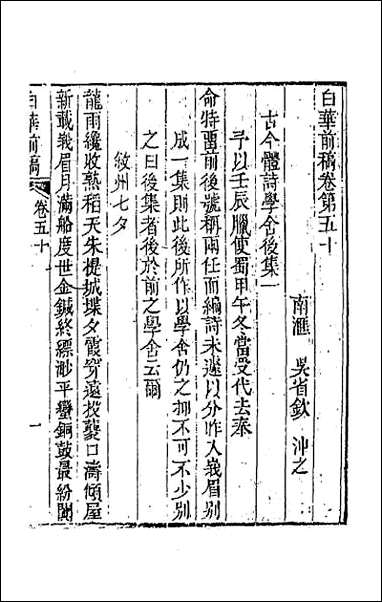 白華前稿卷第五十
南滙　吳省欽　沖之
古今體詩學舍後集一
予以壬辰臘使蜀甲午冬當受代去奉
命特畱前後號稱兩任而編詩未遽以分昨入峩眉別
成一集則此後所作以學舍仍之抑不可不少別
之曰後集者後於前之學舍云爾
敘州七夕
龍雨纔收熟稻天朱提城堞夕霞穿遠投襲口濤傾屋
新戴峩眉月滿船度世金鍼終縹渺平蠻銅鼓最紛闐
白華前稿
卷五十
一